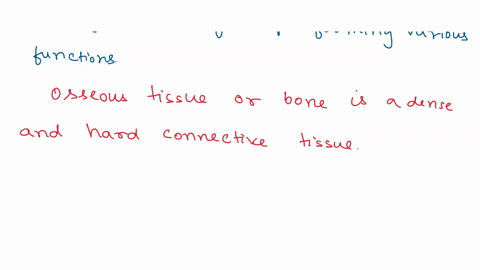 various
functions
Osseous tissue or bone is a dense
and hard connective tissue.